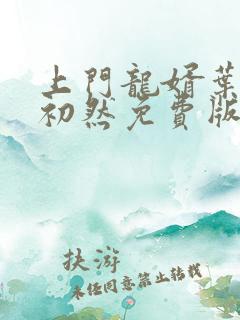 上門龍婿葉
初然免費版
扶游
未经同意禁止转载